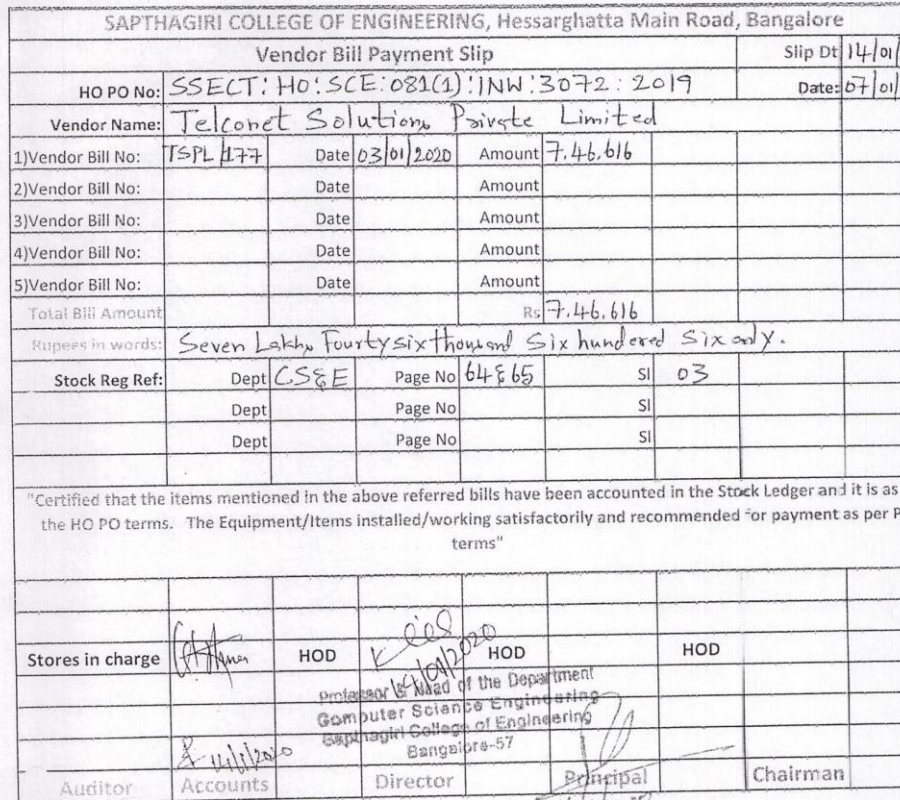 SAPTHAGIRI COLLEGE OF ENGINEERING, Hessarghatta Main Road, Bangalore
Vendor Bill Payment Slip Slip Dt 14/01/
HO PO No: SSECT:HO:SCE:081(1):INW:3072:2019 Date: 07/01/
Vendor Name: Telconet Solutions Private Limited
1)Vendor Bill No: TSPL/177 Date 03/01/2020 Amount 7.46.616
2)Vendor Bill No: Date Amount
3)Vendor Bill No: Date Amount
4)Vendor Bill No: Date Amount
5)Vendor Bill No: Date Amount
Total Bill Amount Rs 7.46.616
Rupees in words: Seven Lakhs Fourty six thousand Six hundered Six only.
Stock Reg Ref: Dept CS&E Page No 64&65 Sl 03
Dept Page No Sl
Dept Page No Sl
"Certified that the items mentioned in the above referred bills have been accounted in the Stock Ledger and it is as
the HO PO terms. The Equipment/Items installed/working satisfactorily and recommended for payment as per P
terms"
Stores in charge HOD HOD HOD
/01/2020
Professor & Head of the Department
Computer Science Engineering
Sapthagiri College of Engineering
Bangalore-57
Auditor Accounts Director Principal Chairman